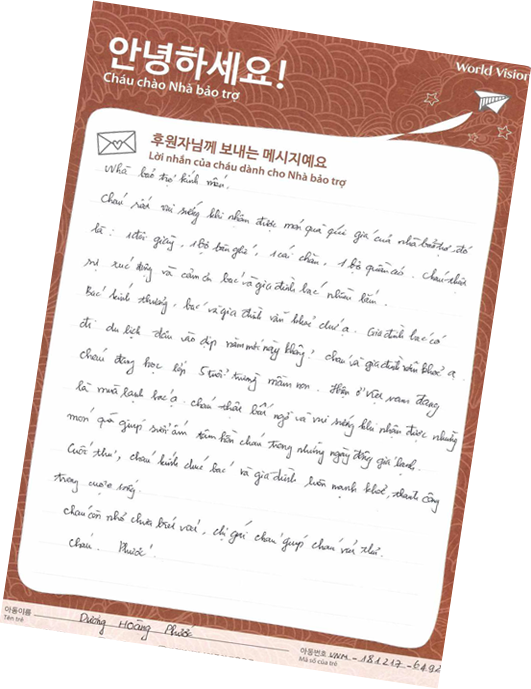 안녕하세요!
Cháu chào Nhà bảo trợ
World Vision
후원자님께 보내는 메시지예요
Lời nhắn của cháu dành cho Nhà bảo trợ
Nhà bảo trợ kính mến.
Cháu rất vui sướng khi nhận được món quà quí giá của nhà bảo trợ, đó
là: 1 đôi giày, 1 bộ bàn ghế, 1 cái chăn, 1 bộ quần áo. Cháu thật
sự xúc động và cảm ơn bác và gia đình bác nhiều lắm.
Bác kính thương, bác và gia đình vẫn khoẻ chứ ạ. Gia đình bác có
đi du lịch đâu vào dịp năm mới này không? cháu và gia đình vẫn khoẻ ạ.
cháu đang học lớp 5 tuổi trường mầm non. Hiện ở việt nam đang
là mùa lạnh bác ạ. cháu thật bất ngờ và vui sướng khi nhận được những
món quà giúp sưởi ấm tâm hồn cháu trong những ngày đông giá lạnh.
Cuối thư, cháu kính chúc bác và gia đình luôn mạnh khoẻ, thành công
trong cuộc sống.
cháu còn nhỏ chưa biết viết, chị gái cháu giúp cháu viết thư.
Cháu. Phước.
아동이름 Dương Hoàng Phước
Tên trẻ
아동번호 VNM-181217-6492
Mã số của trẻ